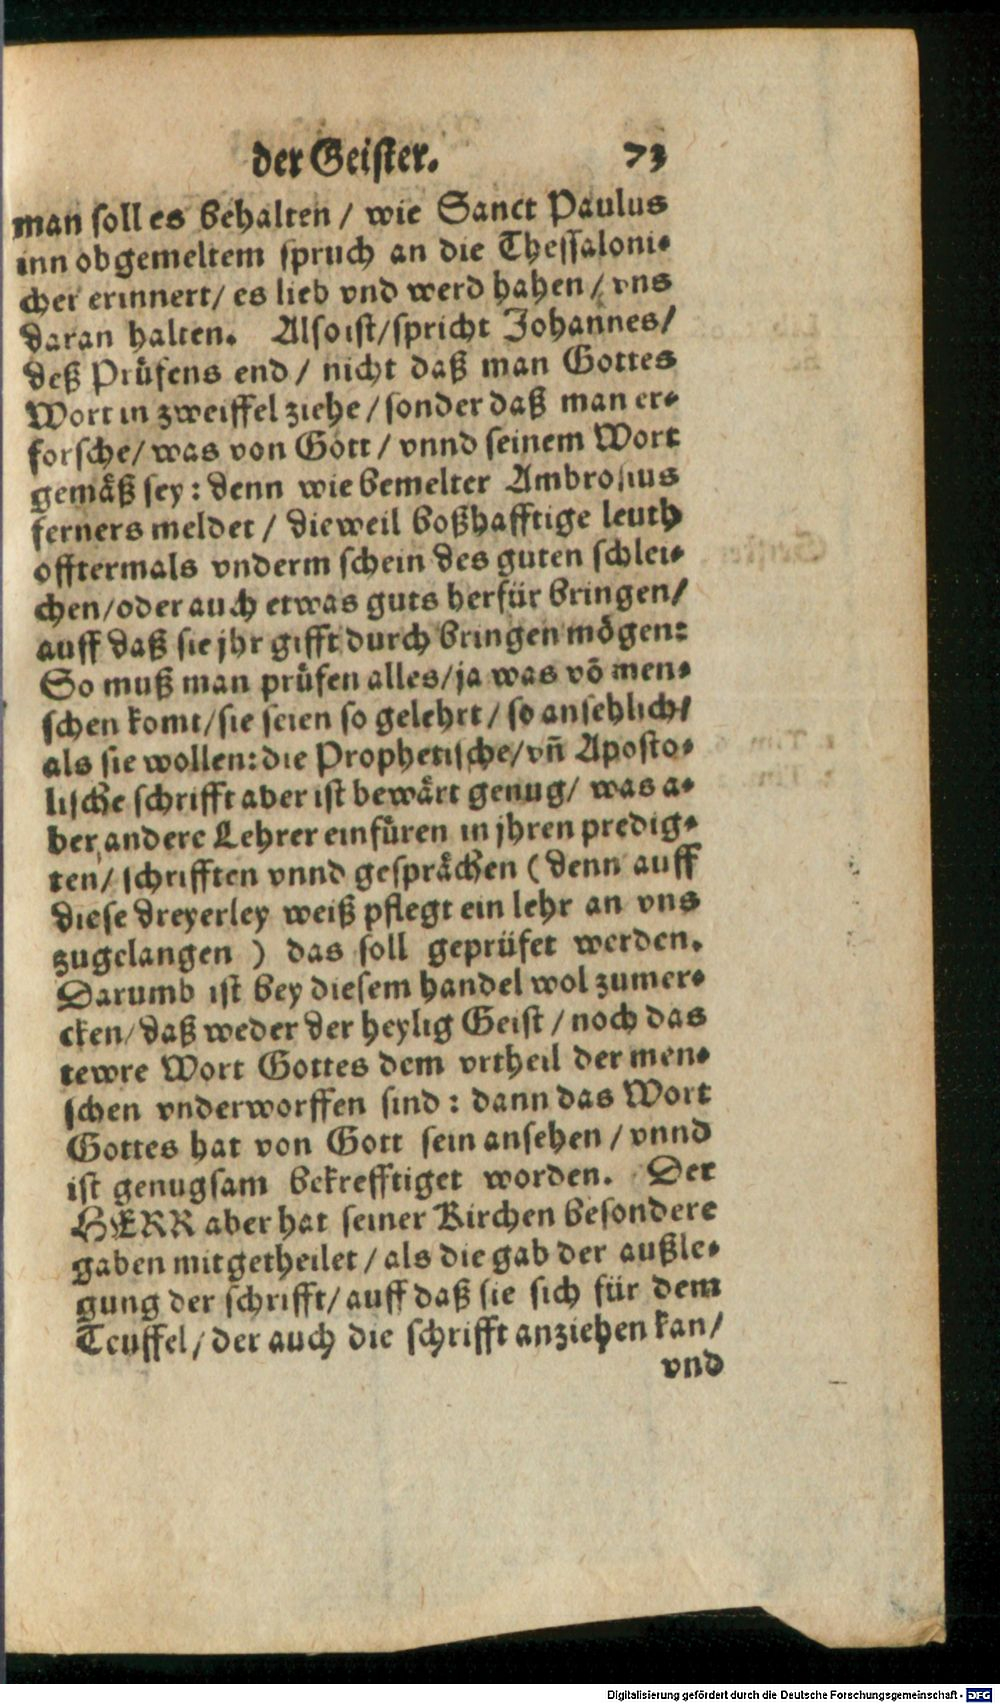 der Geister. 73
man soll es behalten / wie Sanct Paulus
inn obgemeltem spruch an die Thessaloni-
cher erinnert/ es lieb vnd werd hahen / vns
daran halten. Also ist/spricht Johannes/
deß Prüfens end / nicht daß man Gottes
Wort in zweiffel ziehe / sonder daß man er-
forsche/ was von Gott / vnnd seinem Wort
gemäß sey : denn wie bemelter Ambrosius
ferners meldet / dieweil boßhafftige leuth
offtermals vnderm schein des guten schlei-
chen/oder auch etwas guts herfür bringen/
auff daß sie jhr gifft durch bringen mögen:
So muß man prüfen alles/ja was võ men-
schen komt/sie seien so gelehrt / so ansehlich/
als sie wollen: die Prophetische/vñ Aposto-
lische schrifft aber ist bewärt genug/ was a-
ber andere Lehrer einfüren in jhren predig-
ten/ schrifften vnnd gesprächen ( denn auff
diese dreyerley weiß pflegt ein lehr an vns
zugelangen ) das soll geprüfet werden.
Darumb ist bey diesem handel wol zumer-
cken/ daß weder der heylig Geist / noch das
tewre Wort Gottes dem vrtheil der men-
schen vnderworffen sind : dann das Wort
Gottes hat von Gott sein ansehen / vnnd
ist genugsam bekrefftiget worden. Der
HERR aber hat seiner Kirchen besondere
gaben mitgetheilet / als die gab der außle-
gung der schrifft/ auff daß sie sich für dem
Teuffel/ der auch die schrifft anziehen kan/
vnd
Digitalisierung gefördert durch die Deutsche Forschungsgemeinschaft - DFG